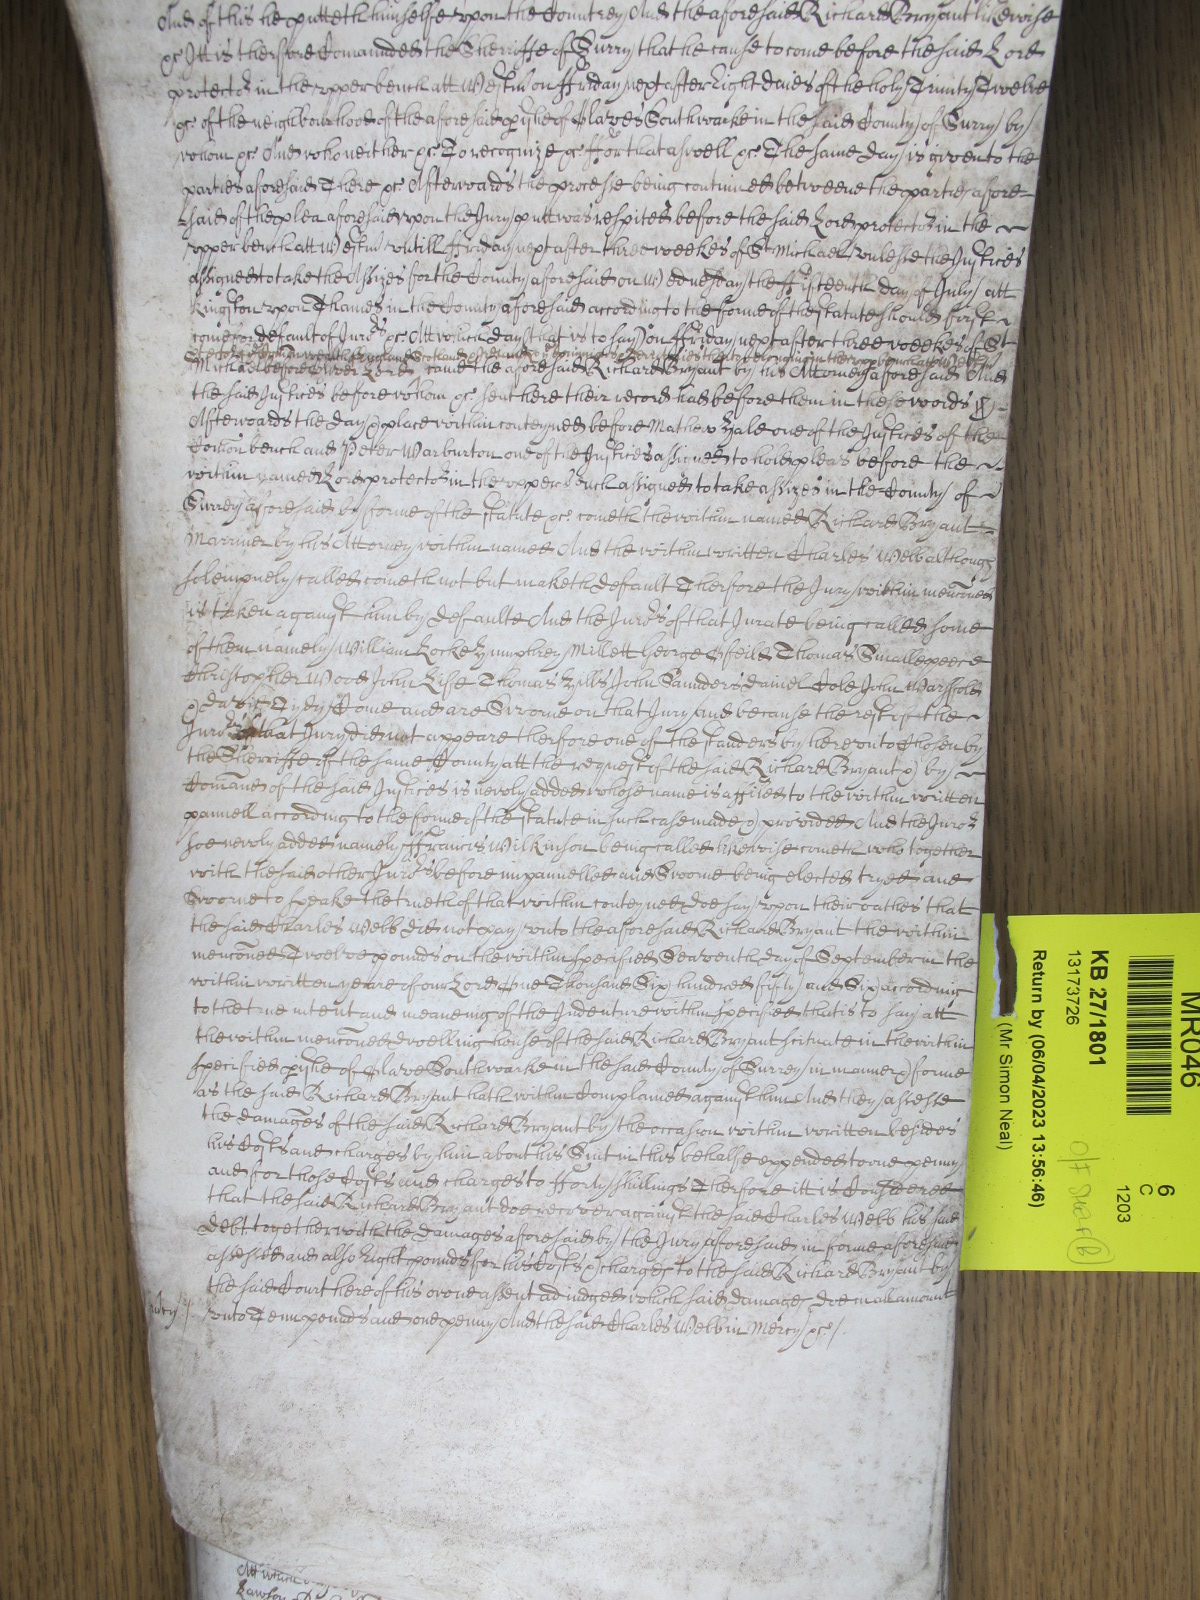 And of this he putteth himselfe upon the Countrey And the aforesaid Richard Bryant likewise
&c Itt is therfore Comaunded the Sheriffe of Surry that he cause to come before the said Lord
protector in the upper bench att Westm on ffriday next after Eight daies of the holy Trinity Twelve
&c of the neighbourhood of the aforesaid pish of Olaves Southwarke in the said County of Surry by
whom &c And who neither &c To recognize &c ffor that aswell &c The same day is given to the
parties aforesaid There &c Afterwards the processe being continued betweene the parties afore-
said of the plea aforesaid upon the Jury putt was respited before the said Lord protector in the
upper bench att Westm untill ffriday next after three weekes of St Michael unlesse the Justices
assigned to take the Assizes for the County aforesaid on Wednesday the ffifteenth day of July att
Kingston upon Thames in the County aforesaid according to the forme of the statute should first
come for default of Jurors &c Att which day that is to say on ffriday next after three weekes of St
Michael before came the aforesaid Richard Bryant by his Attorney aforesaid And
the said Justices before whom &c sent here their record had before them in these words ss
Afterwards the day & place within conteyned before Mathew Hale one of the Justices of the
Comon bench and Peter Warburton one of the Justices assigned to hold pleas before the
within named Lord protector in the upper bench assigned to take assizes in the County of
Surrey aforesaid by forme of the statute &c cometh the within named Richard Bryant
Marriner by his Attorney within named And the within written Charles Webb although
solempnely called cometh not but maketh default Therfore the Jury within menconed
is taken against him by defaulte And the Jurors of that Jurate being called some
of them namely William Locke Humphrey Millett George Ofeild Thomas Smallpeece
Christopher Wood John Lise Thomas Hills John Saunders Daniel Cole John Warffold
& David Tydy Come and are Sworne on that Jury and because the rest of the
Jurors of that Jury did not appeare therfore one of the standers by hereunto Chosen by
the Sherriffe of the same County att the request of the said Richard Bryant & by
Comand of the said Justices is newly added whose name is affiled to the within written
pannell according to the forme of the statute in such case made & provided And the Juror
soe newly added namely ffrancis Wilkinson being called likewise cometh who together
with the said other Jurors before impannelled and Sworne being elected tryed and
Sworne to speake the trueth of that within conteyned doe say upon their oathes that
the said Charles Webb did not pay unto the aforesaid Richard Bryant the within
menconed Twelve pounds on the within specified Seaventh day of September in the
within written yeare of our Lord One Thousand Six hundred fifty and Six according
to the true intent and meaneing of the Indenture within specified that is to say att
the within menconed dwelling house of the said Richard Bryant scituate in the within
specified pish of Olave Southwarke in the said County of Surrey in manner & forme
as the said Richard Bryant hath within Complained against him And they assesse
the damages of the said Richard Bryant by the occasion within written besides
his Costs and charges by him about his Suit in this behalfe expended to one penny
and for those Costs and charges to fforty shillings Therfore itt is Considered
that the said Richard Bryant doe recover against the said Charles Webb his said
debt together with the damages aforesaid by the Jury aforesaid in forme aforesaid
assessed and also Eight pounds for his Costs & charges to the said Richard Bryant by
the said Court here of his owne assent adiudged which said damages doe in all amount
unto Tenn pounds and one penny And the said Charles Webb in Mercy &c
MR046
6
C
1203
KB 27/1801
13173726
Return by (06/04/2023 13:56:46)
(Mr Simon Neal)